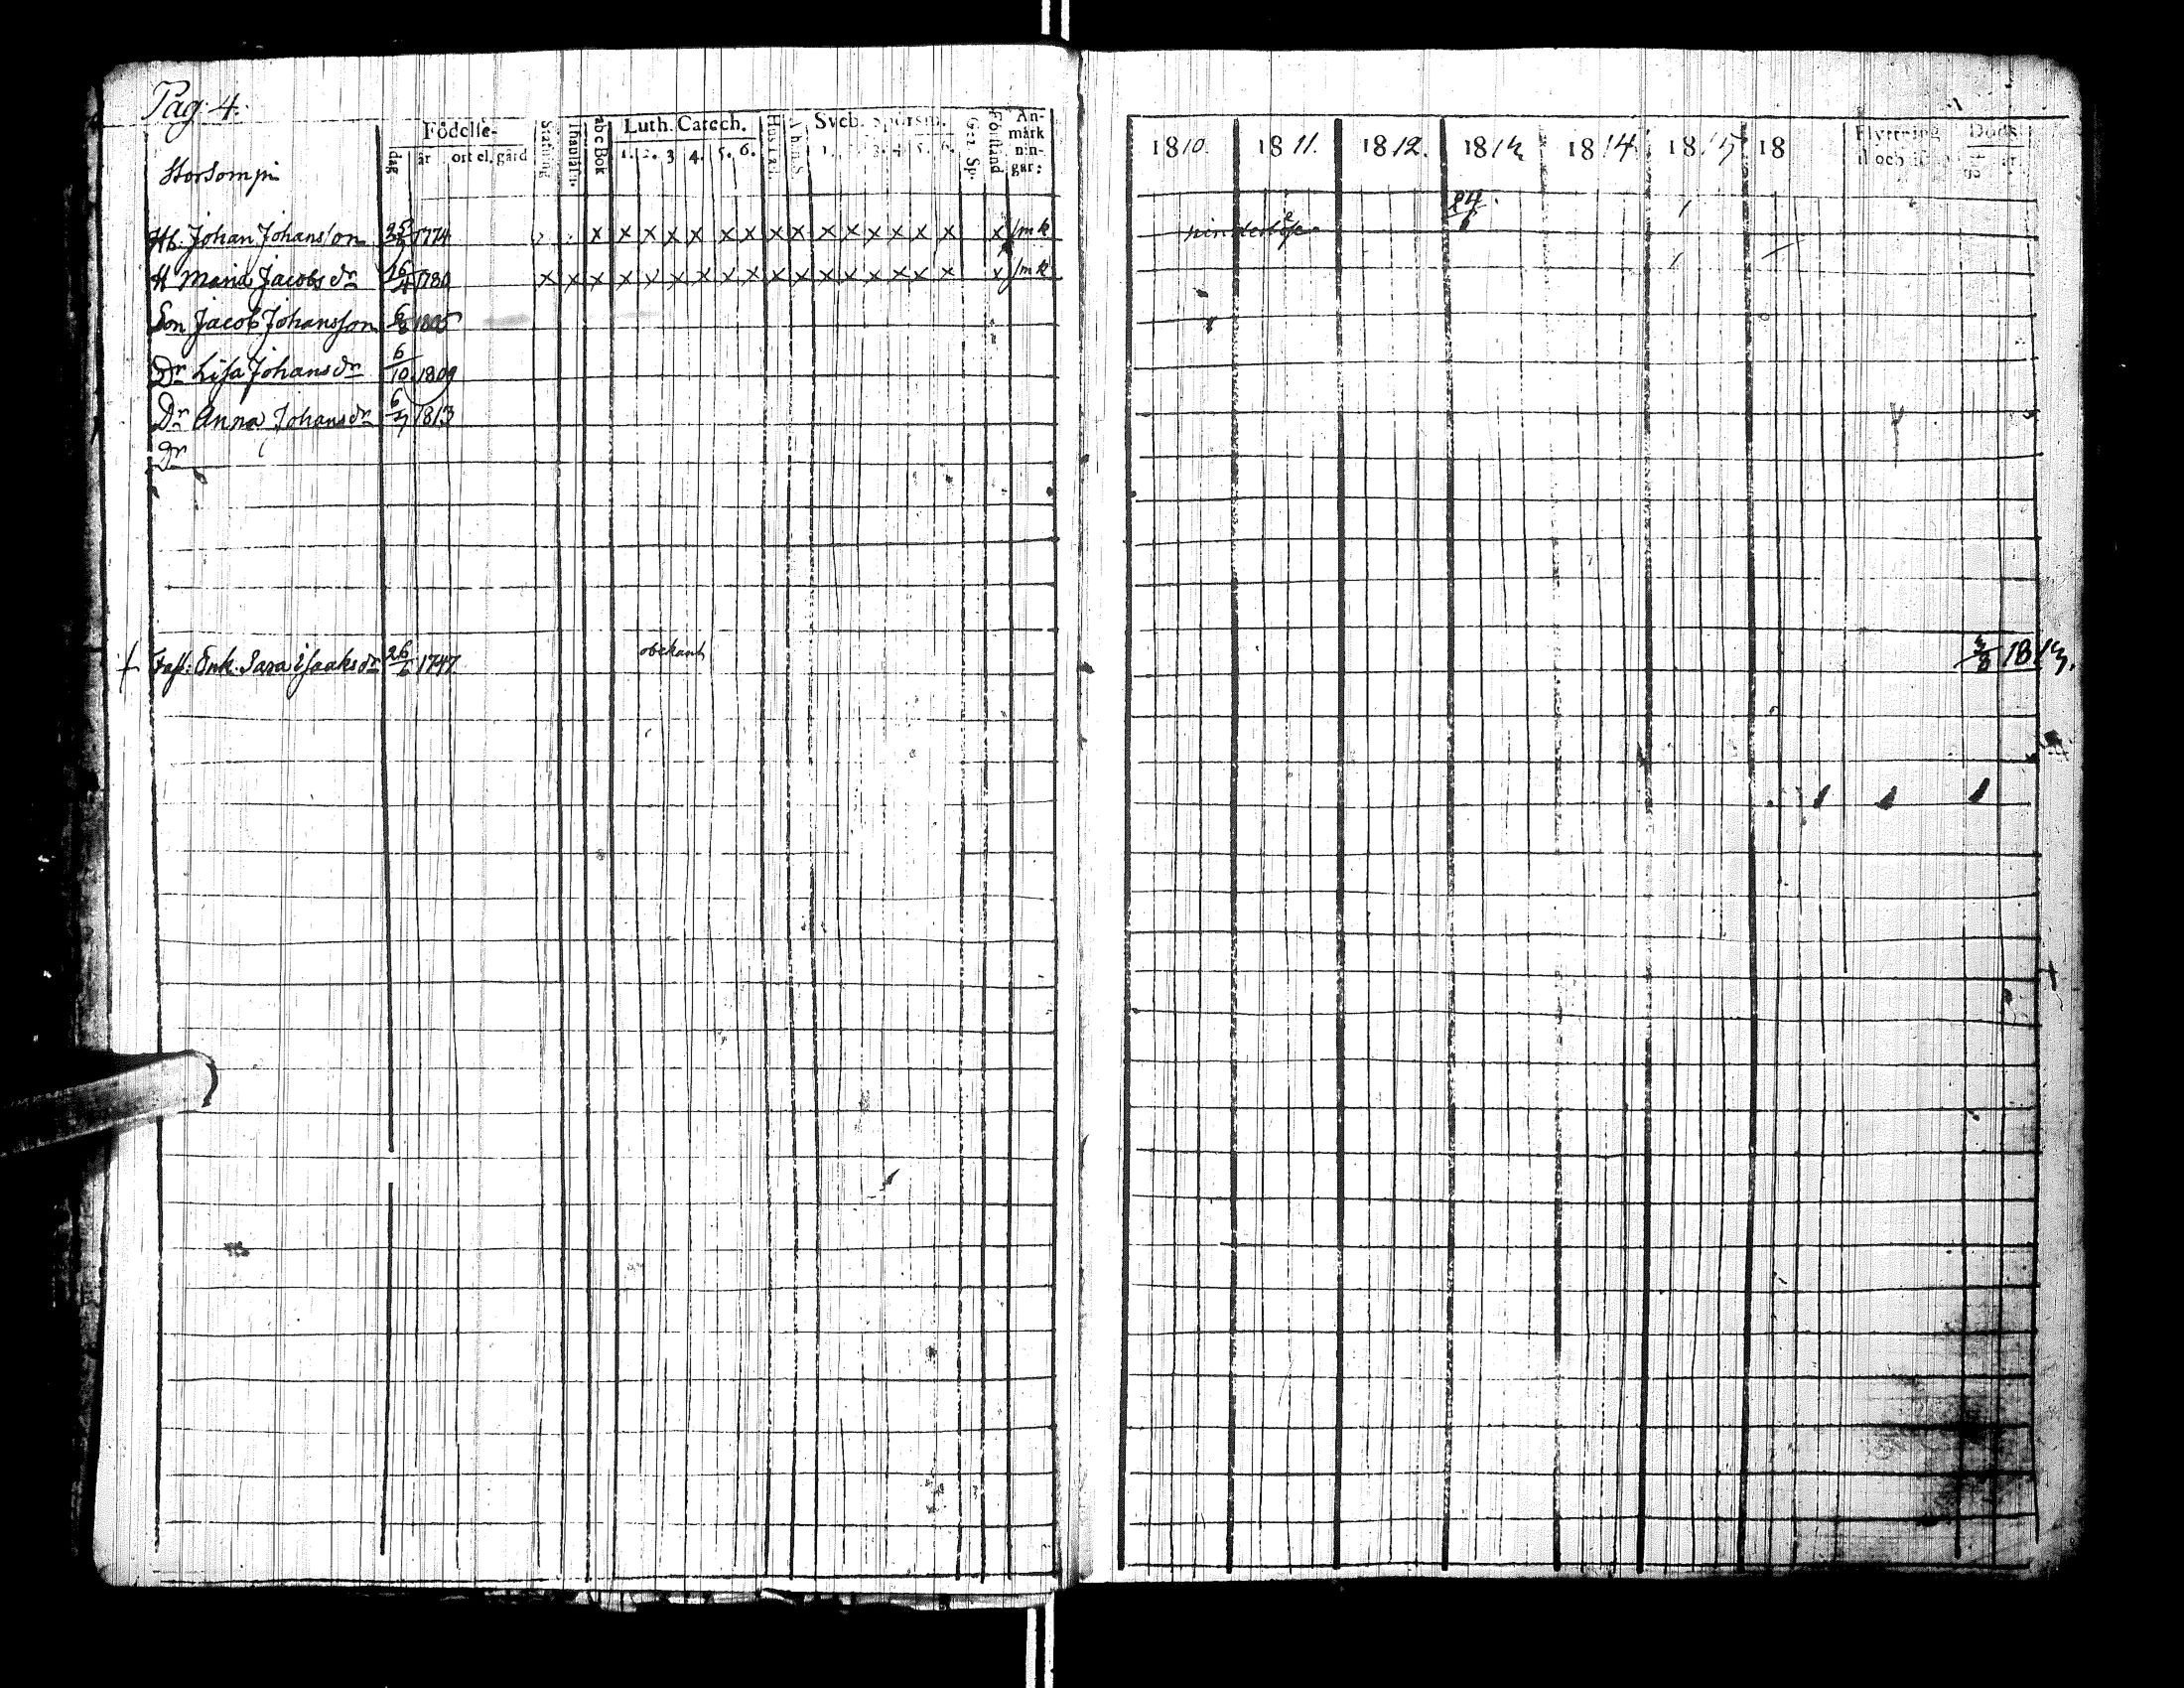 Pag. 4.
Storsompi
Födelse-
dag år ort el. gård
Stafning
abc Bok
Luth. Catech.
1. 2. 3 4. 5. 6.
Sveb. Spörsm.
Gez. Sp.
Förstånd
An-
märk
nin-
gar:
Hb. Johan Johansson 1774 x x x x x x x x x x x x x x x x
H Maria Jacobs dr 16/4 x x x x x x x x x x x x x x x x x
Son Jacob Johansson 1805
Dr Lisa Johans dr 6/10 1809
Dr Anna Johans dr 6/7 1813
Dr
Enk. Sara Isaaks dr 1747 obekant
1810. 1811. 1812. 1813 1814 1815 18
Flyttning
Döds
24
3/8 1813.